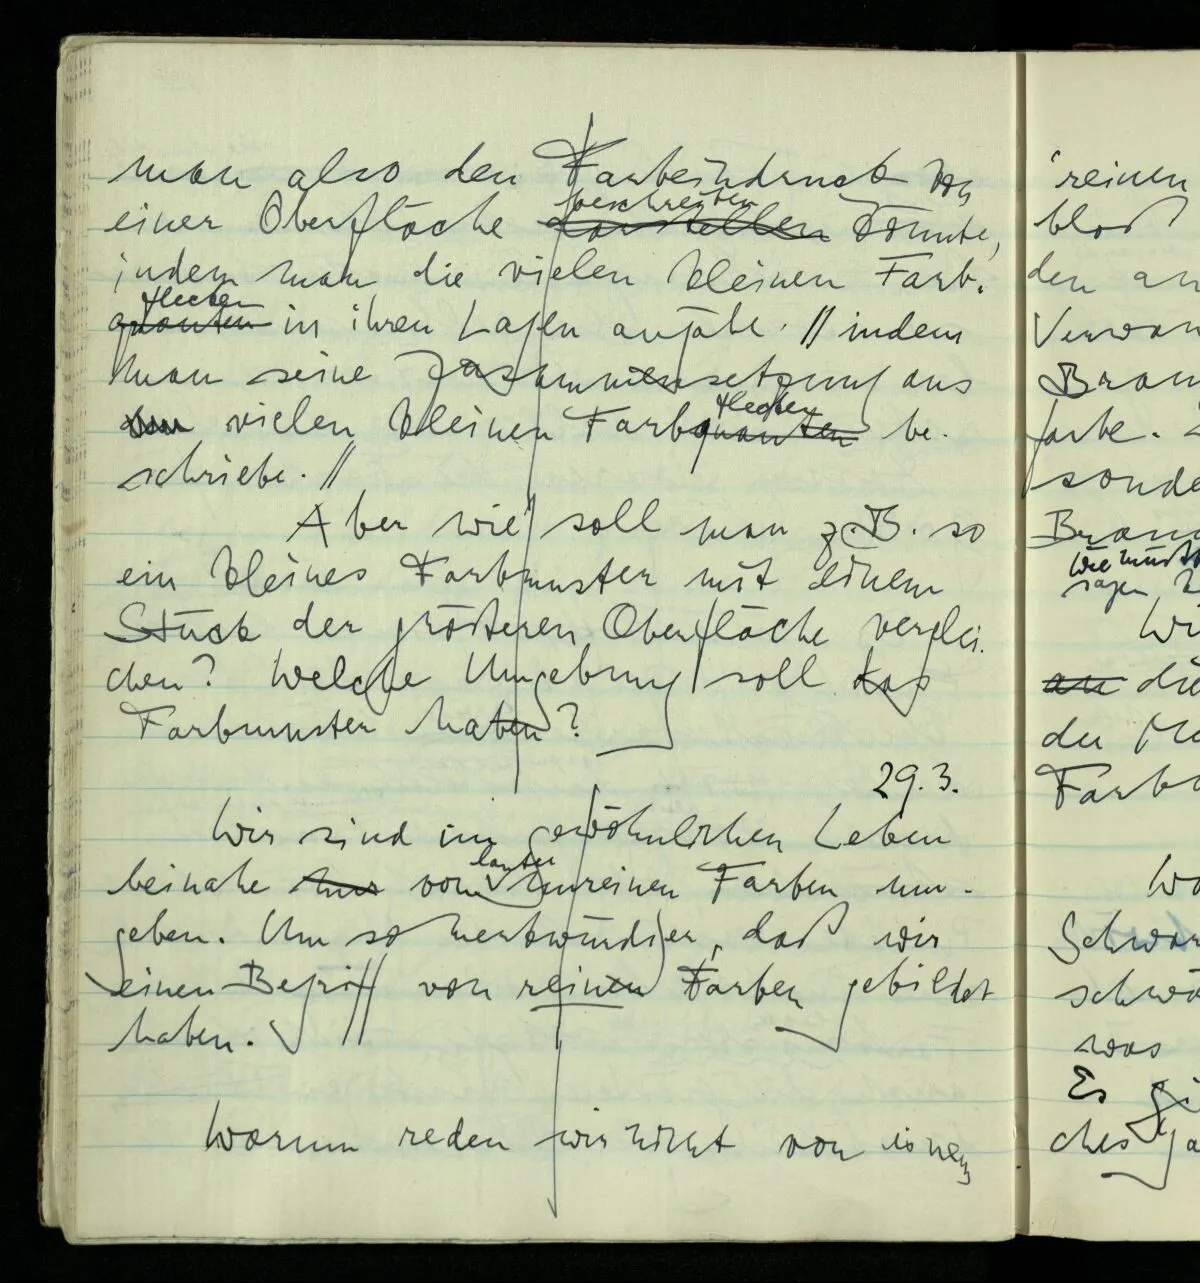 man also den Farbeindruck von
einer Oberfläche darstellen beschreiben könnte,
indem man die vielen kleinen Farb-
quanten flecken in ihren Lagen angäbe. // indem
man seine Zusammensetzung aus
den vielen kleinen Farbquanten flecken be-
schriebe. //
Aber wie soll man z.B. so
ein kleines Farbmuster mit einem
Stück der größeren Oberfläche verglei-
chen? Welche Umgebung soll das
Farbmuster haben?
29.3.
Wir sind im gewöhnlichen Leben
beinahe nur von lauter unreinen Farben um-
geben. Um so merkwürdiger, daß wir
einen Begriff von reinen Farben gebildet
haben.
Warum reden wir nicht von einem
reinen
bloß
den an
Verwan
Braun
farbe.
sonde
Braun
Wie müßt
sagen
Wi
an die
der Ma
Farb
Wa
Schwar
schwä
was
Es gi
ches ja